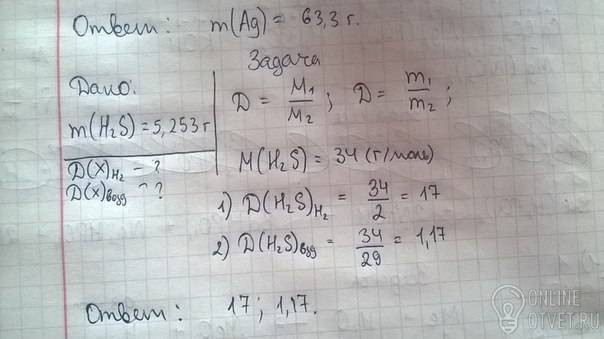 Ответ: m(Ag) = 63,3 г.
Задача
Дано:
m(H₂S) = 5,253 г
D(X)H₂ - ?
D(X)возд - ?
D = M₁/M₂ ; D = m₁/m₂ ;
M(H₂S) = 34 (г/моль)
1) D(H₂S)H₂ = 34/2 = 17
2) D(H₂S)возд = 34/29 = 1,17
Ответ: 17 ; 1,17.
ONLINE
OTVET.RU